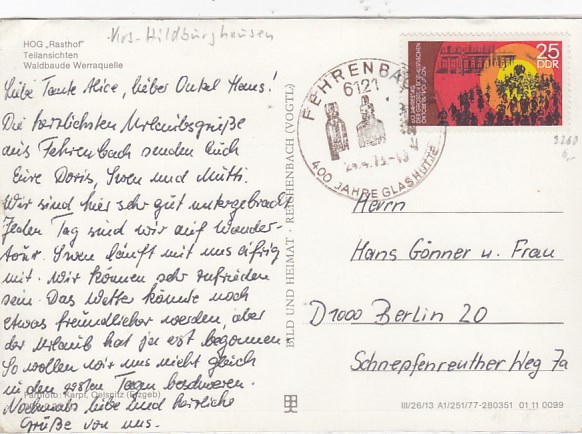 Krs. Hildburghausen
HOG „Rasthof“
Teilansichten
Waldbaude Werraquelle
Liebe Tante Alice, lieber Onkel Hans!
Die herzlichsten Urlaubsgrüße
aus Fehrenbach senden Euch
Eure Doris, Swen und Mutti.
Wir sind hier sehr gut untergebracht
Jeden Tag sind wir auf Wander-
tour. Swen läuft mit uns eifrig
mit. Wir können sehr zufrieden
sein. Das Wetter könnte noch
etwas freundlicher werden, aber
der Urlaub hat ja erst begonnen.
So wollen wir uns nicht gleich
in den ersten Tagen beschweren.
Nochmals liebe und herzliche
Grüße von uns.
Farbfoto: Karpf, Oelsnitz (Erzgeb)
BILD UND HEIMAT · REICHENBACH (VOGTL)
FEHRENBACH
6121
400 JAHRE GLASHÜTTE
25
DDR
Herrn
Hans Gönner u. Frau
D1000 Berlin 20
Schnepfenreuther Weg 7a
III/26/13 A1/251/77-280351 01 11 0099